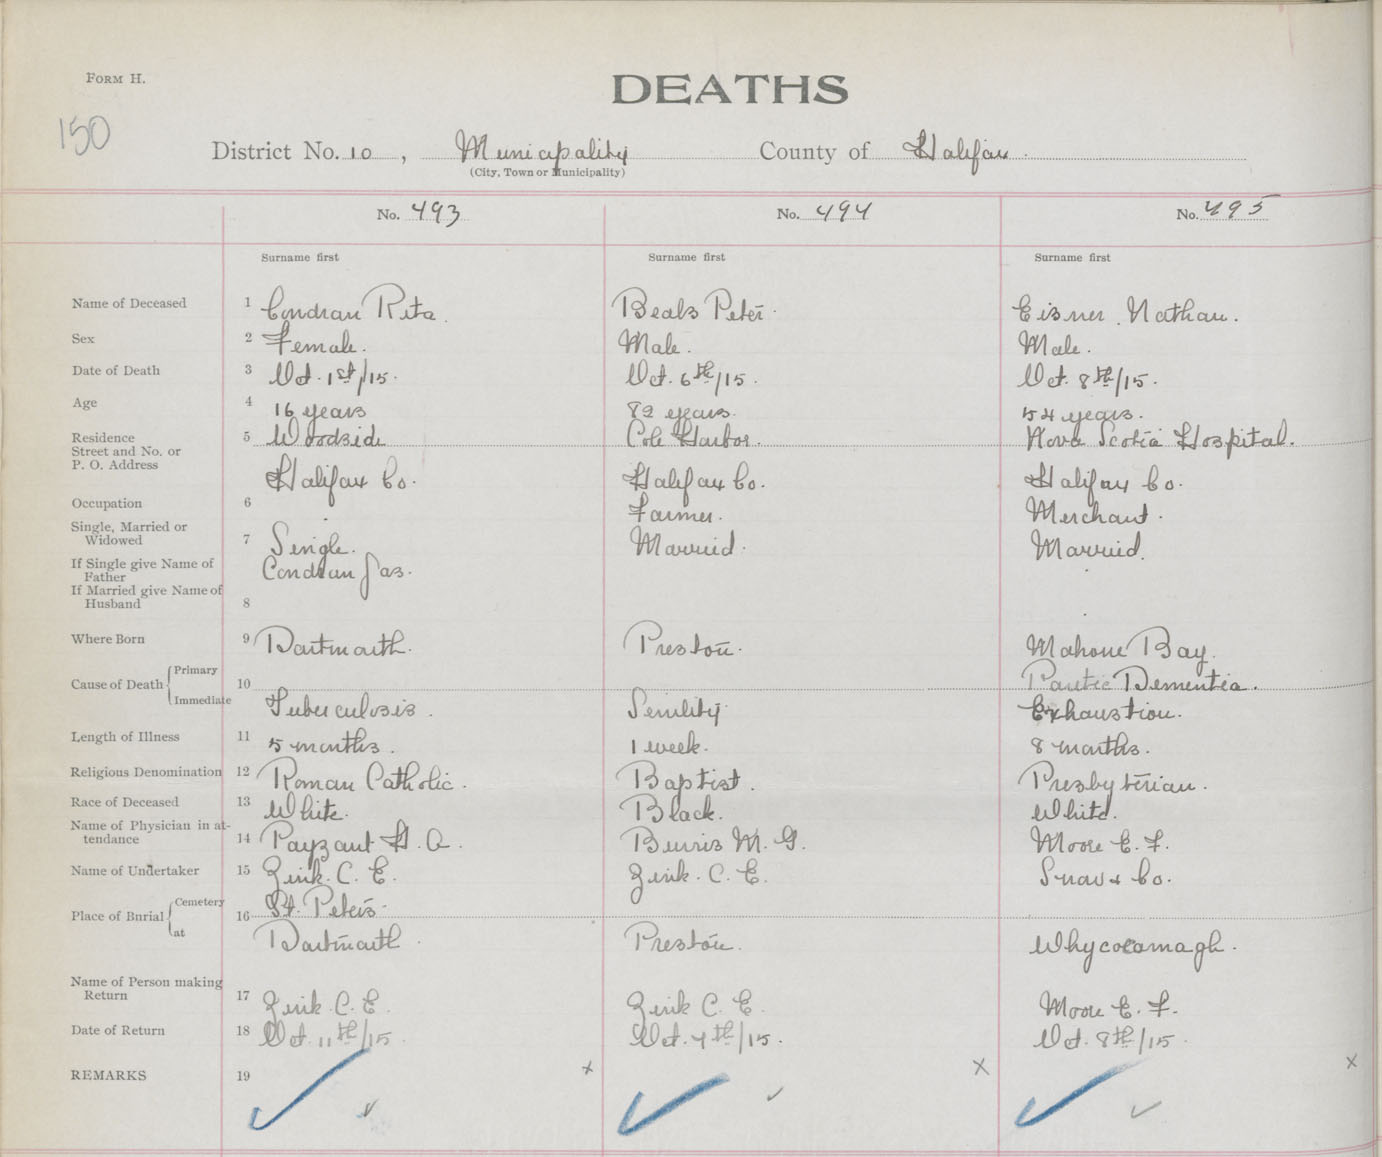 FORM H.
DEATHS
150
District No. 10, Municipality County of Halifax
(City, Town or Municipality)
No. 493 No. 494 No. 495
Surname first Surname first Surname first
Name of Deceased 1 Condran Rita. Beals Peter. Eisner Nathan.
Sex 2 Female. Male. Male.
Date of Death 3 Oct. 1st/15. Oct. 6th/15. Oct. 8th/15.
Age 4 16 years 82 years. 54 years.
Residence 5 Woodside Cole Harbor. Nova Scotia Hospital.
Street and No. or
P. O. Address Halifax Co. Halifax Co. Halifax Co.
Occupation 6 Farmer. Merchant.
Single, Married or
Widowed 7 Single. Married. Married.
If Single give Name of
Father Condran Jas.
If Married give Name of
Husband 8
Where Born 9 Dartmouth. Preston. Mahone Bay.
Primary Dementia.
Cause of Death 10
Immediate Tuberculosis. Senility Exhaustion.
Length of Illness 11 5 months. 1 week. 8 months.
Religious Denomination 12 Roman Catholic. Baptist. Presbyterian.
Race of Deceased 13 White. Black. White.
Name of Physician in at-
tendance 14 Payzant H. A. Burris M. G. Moore E. F.
Name of Undertaker 15 Zink. C. E. Zink. C. E. Snow & Co.
Cemetery St. Peters.
Place of Burial 16
at Dartmouth. Preston. Whycocamagh.
Name of Person making
Return 17 Zink. C. E. Zink C. E. Moore E. F.
Date of Return 18 Oct. 11th/15. Oct. 7th/15. Oct. 8th/15.
REMARKS 19 x x x